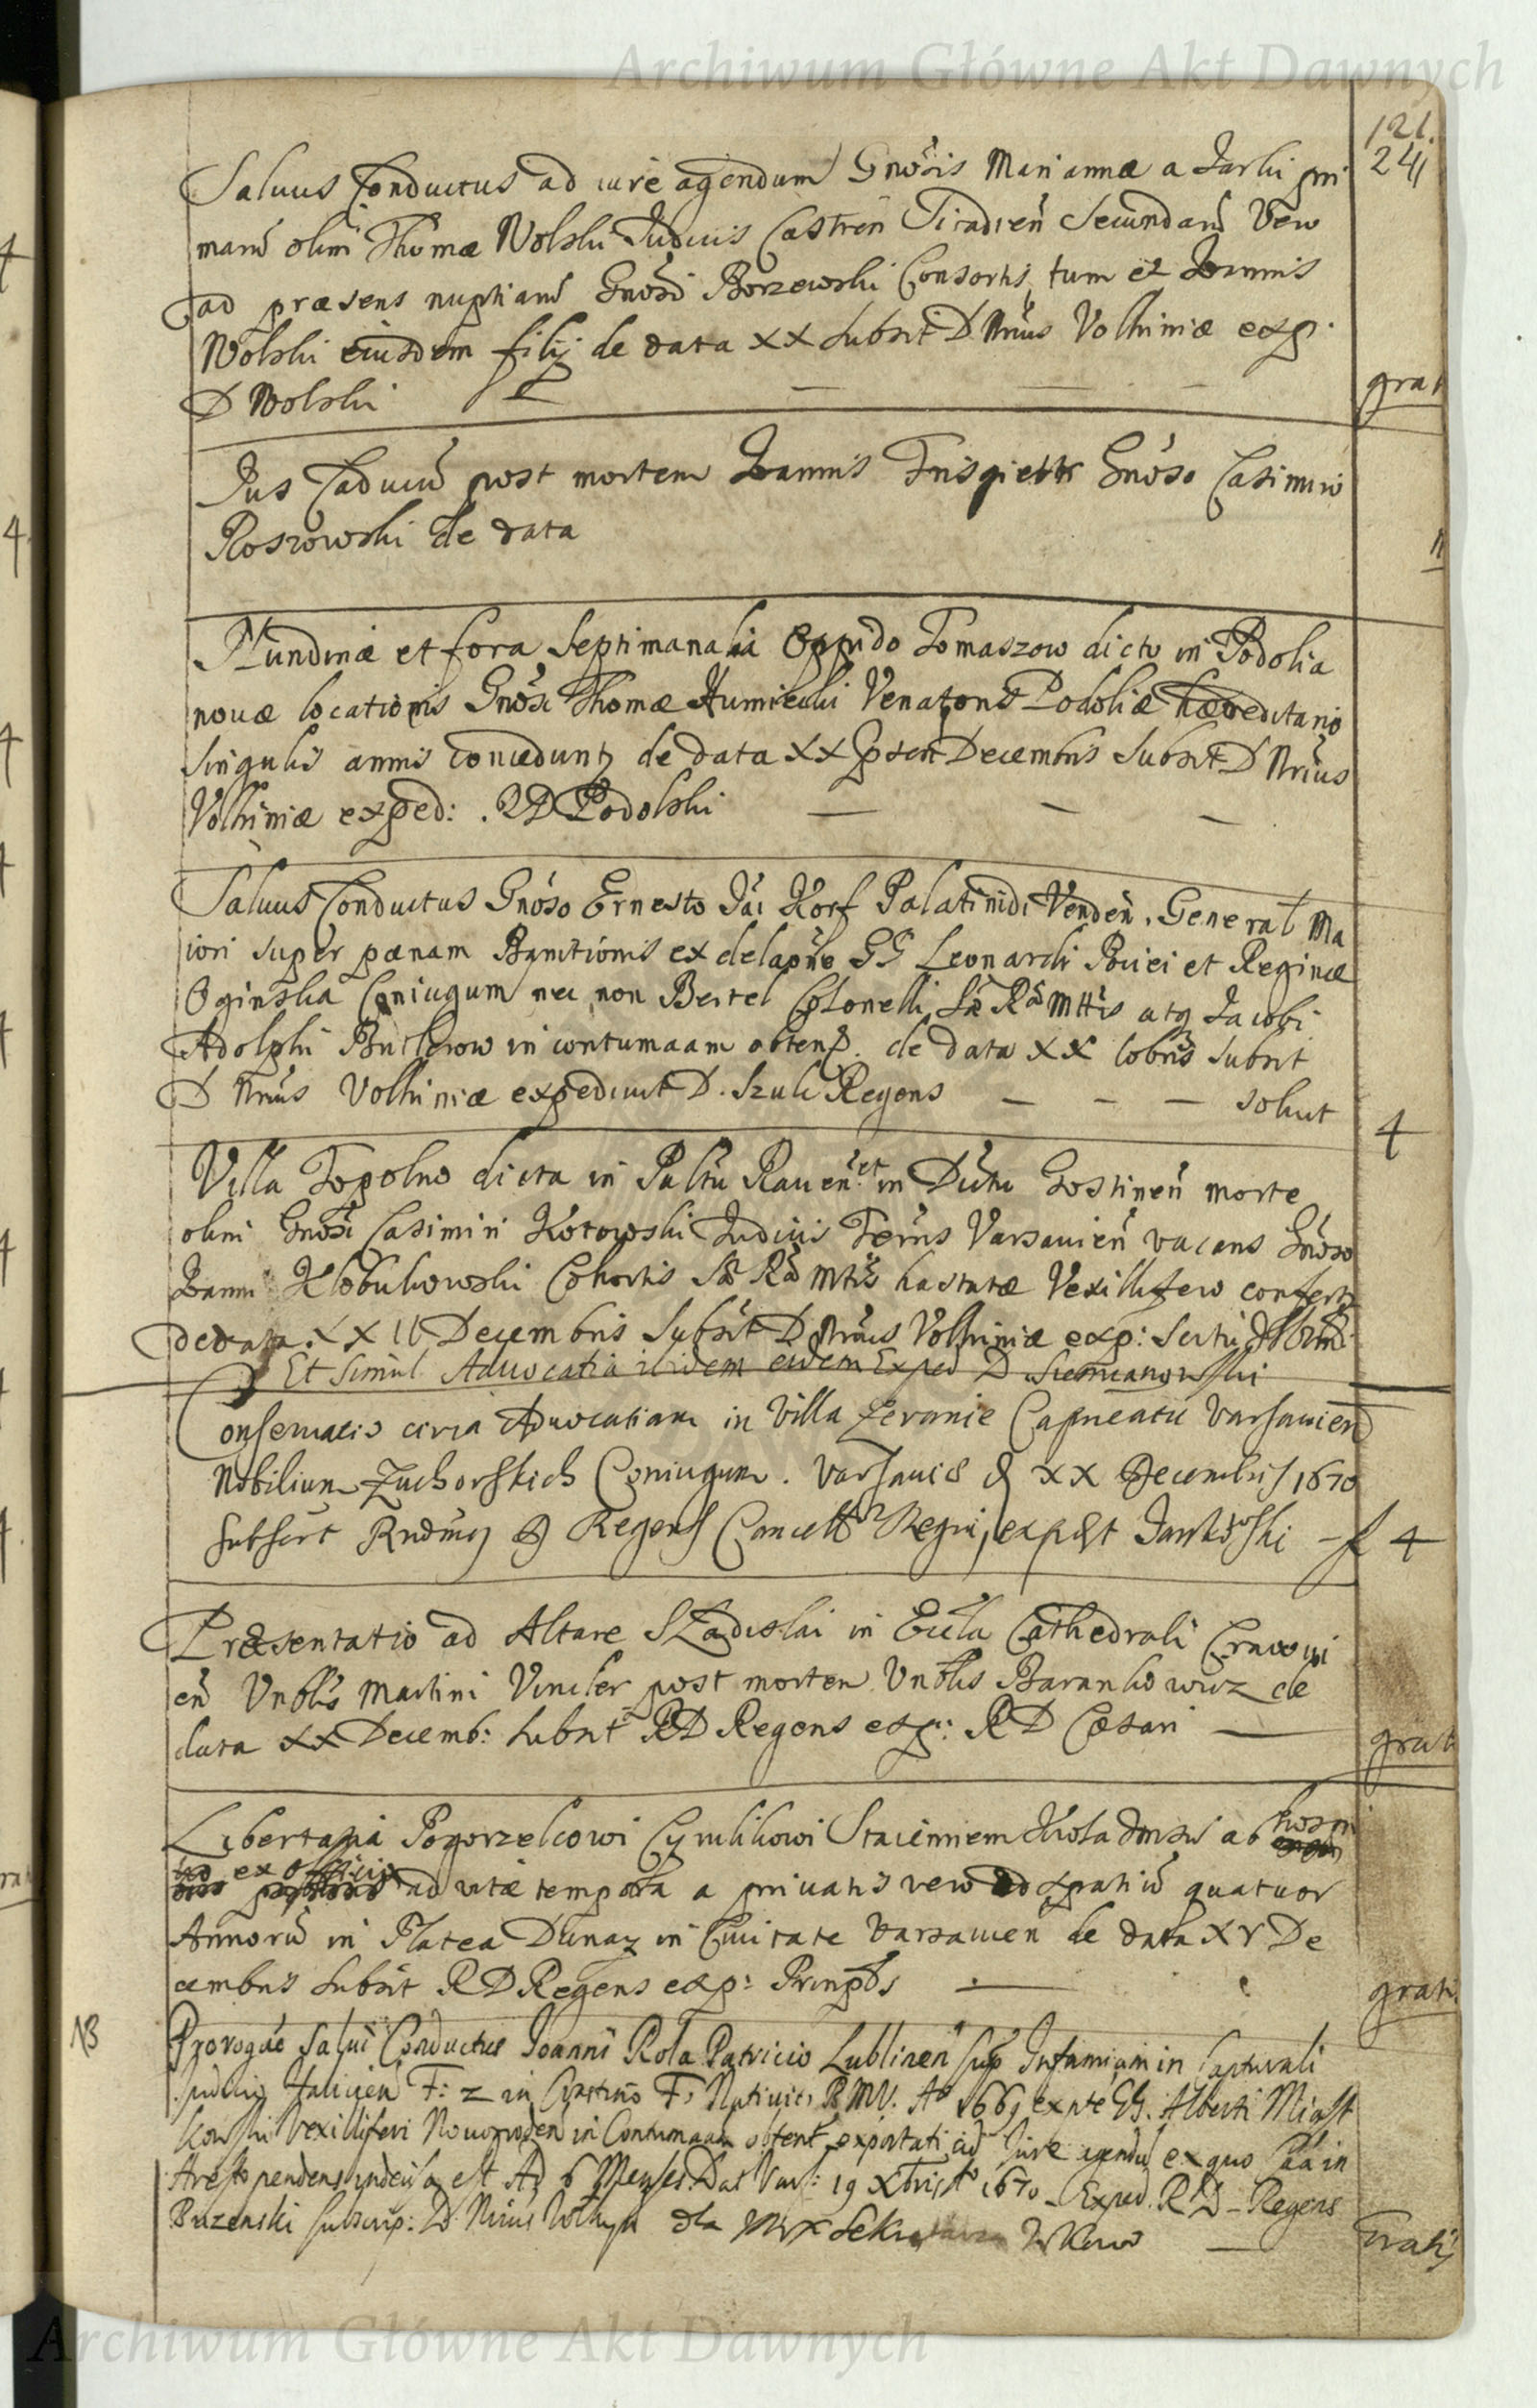 Archiwum Główne Akt Dawnych
121.
241
Saluus Conductus ad iure agendum Gnõsis Mariannæ a Jarki pri
mariũ olim Thomæ Wolski Judicis Castren̄ Siradien̄ Secundariũ Vero
ad præsens nuptiarũ Gnõsi Borzewski Consortis, tum et Joannis
Wolski eiusdem filij de data XX Subsit D Nrius Volhiniæ exp.
D Wolski
grat
Jus Caducũ post mortem Joannis Gnõso Casimiro
Roszowski de data
Nundinæ et fora Septimanalia Oppido Tomaszow dicto in Podolia
nouæ locationis Gnõsi Thomæ Humiecki Venatoris Podoliæ hæreditario
singulis annis conceduntʒ de data XX Decembris Subsit D Nrius
Volhiniæ exped: . RD Podolski
Saluus Conductus Gnõso Ernesto Korf Palatinidi Venden̄. General Ma
iori super pœnam Bannitionis ex delaõne GG Leonardi Pociei et Reginæ
Oginska Coniugum nec non Bertel Colonelli Sæ Ræ Mttis atq Jacobi
Adolphi Butlerow in contumaciam obtent. de data XX Xbris Subsit
D Nrius Volhiniæ expediuit D. Szulc Regens — — — soluit
4
Villa Topolno dicta in Pallũ Rauen̄. et in Dictu Gostinen̄ morte
olim Gnõsi Casimiri Kotowski Judicis Terris Varsauien̄ vacans Gnõso
Joanni Klobukowski Cohortis Sæ Ræ Mttis hastatæ Vexillifero confertʒ
de data XXIV Decembris Subsit D Nrius Volhiniæ exp:
Et simul Aduocatia ibidem eidem Exped D Siemianowski
Conseruatio circa Aduocatiam in Villa Zeranie Capneatu Varsauien̄
Nobilium Zuchorskich Coniugum. Varsauiæ d XX Decembris 1670
subscrt Rndmus D Regens Cancellr Regni, expdt Jankowski – f 4
Præsentatio ad Altare S Ladislai in Eccla Cathedrali Cracoui
en̄ Vnblis Martini Vincler post mortem Vnblis Barankowicz de
data XX Decemb: Subsit RD Regens exp: RD Cæsari
grat
Libertatia Pogorzelcowi Cyrulikowi ab hospi
tijs ex officijs ad vitæ tempora a priuatis vero ad spatiũ quatuor
Annorũ in Platea Dunay in Ciuitate Varsauien̄ de data XV De
cembris Subsit RD Regens exp:
grati
13
Prorogaõ Salui Conductus Joanni Rola Patricio Lublinen̄ sup Infamiam in Capturali
Judicio Halicien̄ F: 2 in Crastino F: Natiuit: BMV: Aº 1669 ex pte GG. Alberti Miast
kowski Vexilliferi Nouogroden in Contumaciam obtent exportati ad Jure agendũ ex quo Cãa in
Aresto pendens indecisa est Ad 6 Menses. Dat Vars: 19 Xbris Aº 1670 – Exped. RD – Regens
Buzenski subscrip: D Nrius Wolhyn dla
Gratis
Archiwum Główne Akt Dawnych